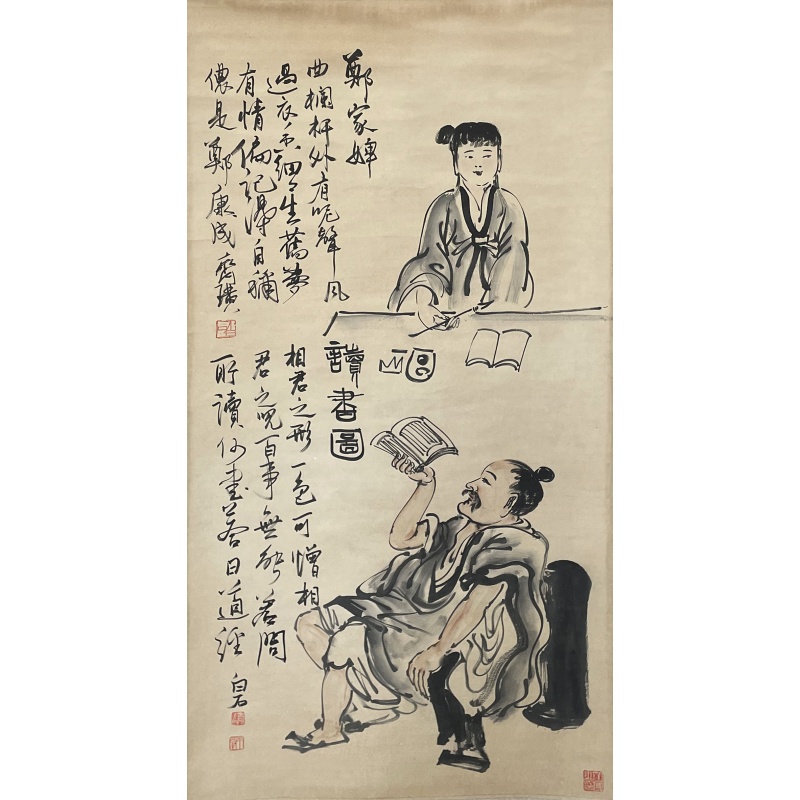 鄭家婢
曲欄杆外有呢聲風
過衣香細々生舊夢
有情偏記得自稱
儂是鄭康成 齊璜
讀書圖
相君之形一色可憎相
君之皃百事無能若問
所讀何書答曰道經
白石